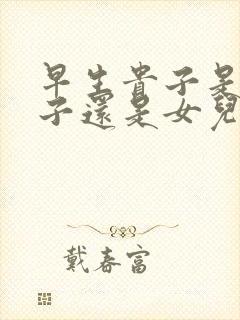 早生貴子是
子還是女兒
戴春富